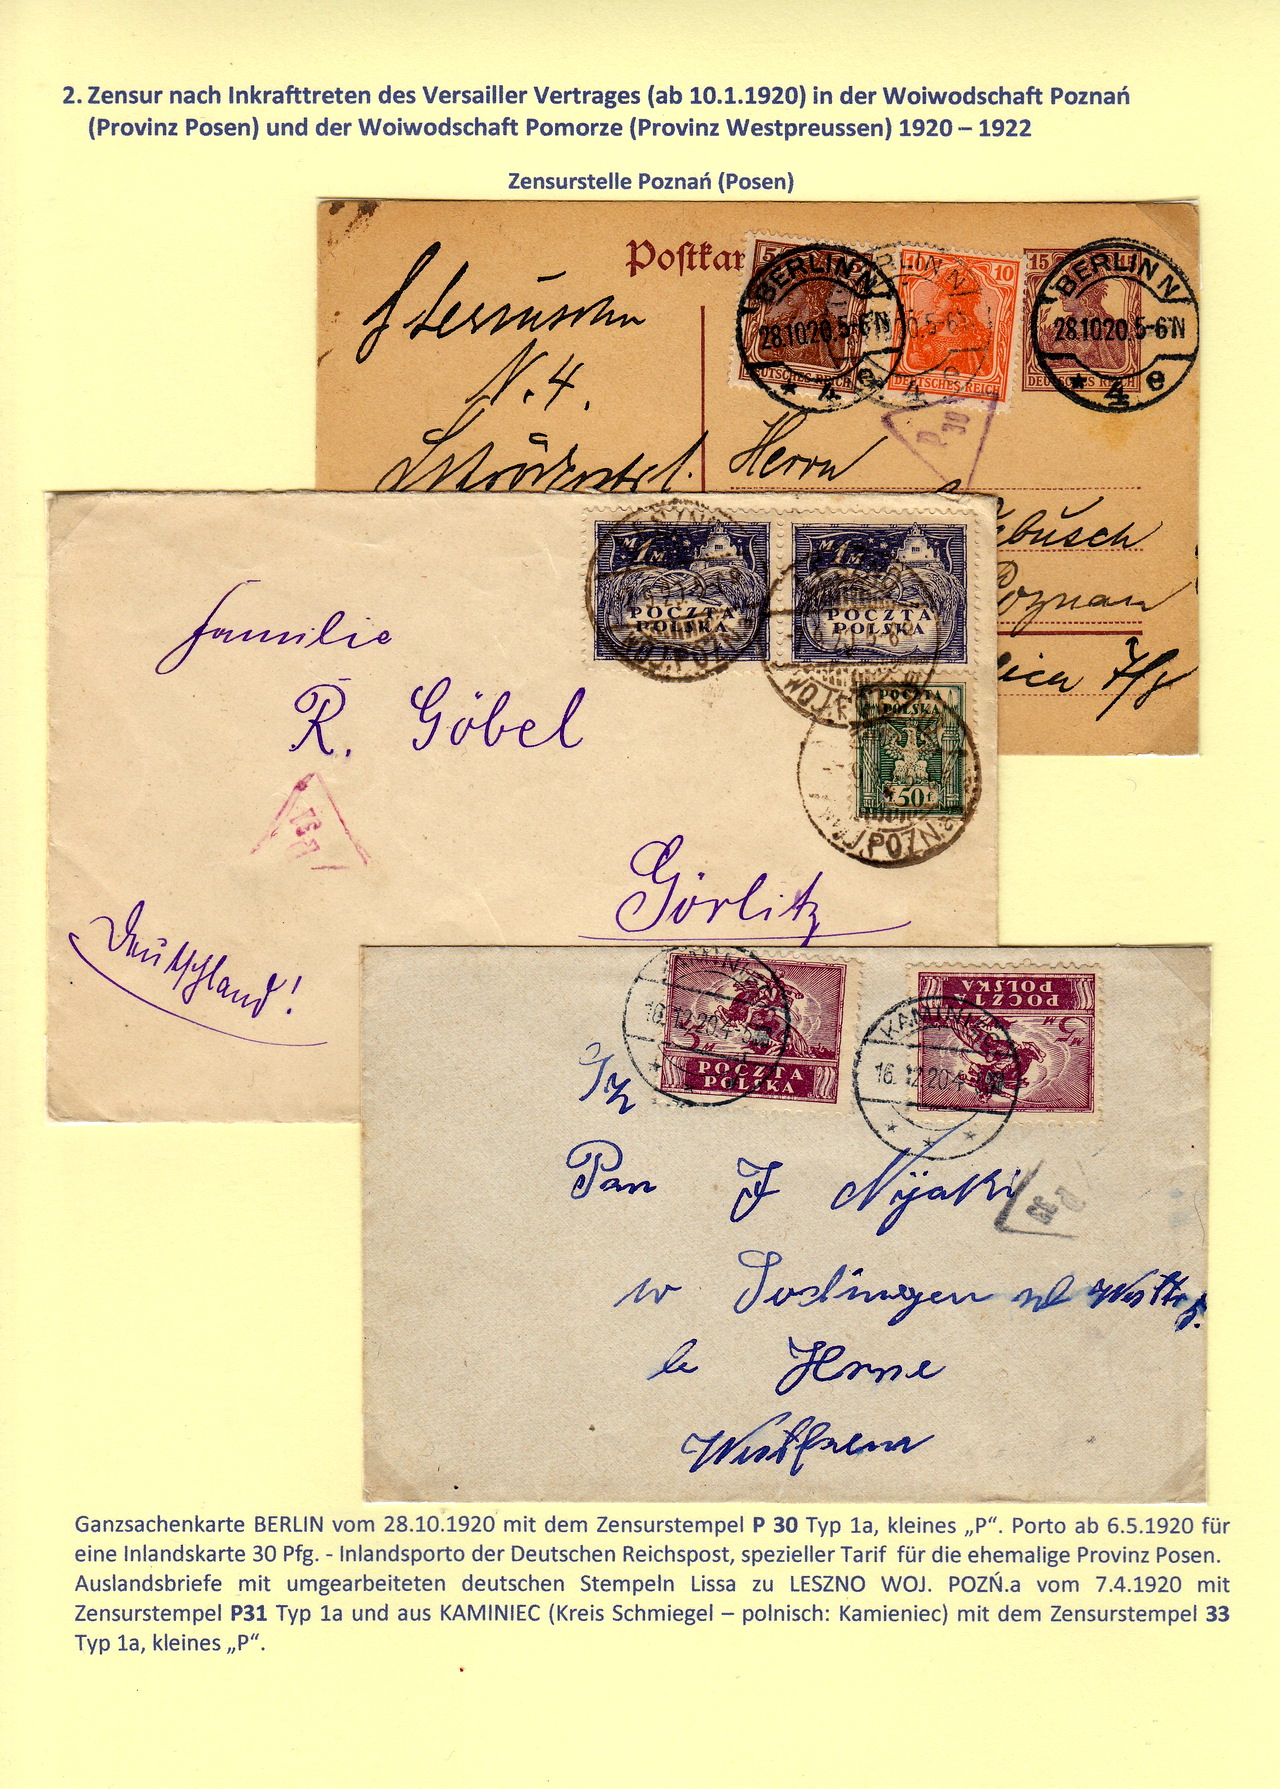 2. Zensur nach Inkrafttreten des Versailler Vertrages (ab 10.1.1920) in der Woiwodschaft Poznań
(Provinz Posen) und der Woiwodschaft Pomorze (Provinz Westpreussen) 1920 – 1922
Zensurstelle Poznań (Posen)
Postkar
5
10
10
15
15
BERLIN N
28.10.20.5-6N
* 4 e
BERLIN N
BERLIN N
28.10.20.5-6N
* 4 e
DEUTSCHES REICH
DEUTSCHES REICH
DEUTSCHES REICH
P
30
N. 4.
Herrn
busch
Poznan
7/8
1 M
1 M
POCZTA
POLSKA
POCZTA
POLSKA
POCZTA
POLSKA
50 f
POZN
Familie
R. Göbel
P 31
Görlitz
Deutschland!
KAMINIEC
16.12.20.4-5
5 M
POCZTA
POLSKA
KAMINIEC
16.12.20.4-5
5 M
POCZTA
POLSKA
P
33
Pan J
w
Herne
Ganzsachenkarte BERLIN vom 28.10.1920 mit dem Zensurstempel P 30 Typ 1a, kleines „P“. Porto ab 6.5.1920 für
eine Inlandskarte 30 Pfg. - Inlandsporto der Deutschen Reichspost, spezieller Tarif für die ehemalige Provinz Posen.
Auslandsbriefe mit umgearbeiteten deutschen Stempeln Lissa zu LESZNO WOJ. POZŃ.a vom 7.4.1920 mit
Zensurstempel P31 Typ 1a und aus KAMINIEC (Kreis Schmiegel – polnisch: Kamieniec) mit dem Zensurstempel 33
Typ 1a, kleines „P“.